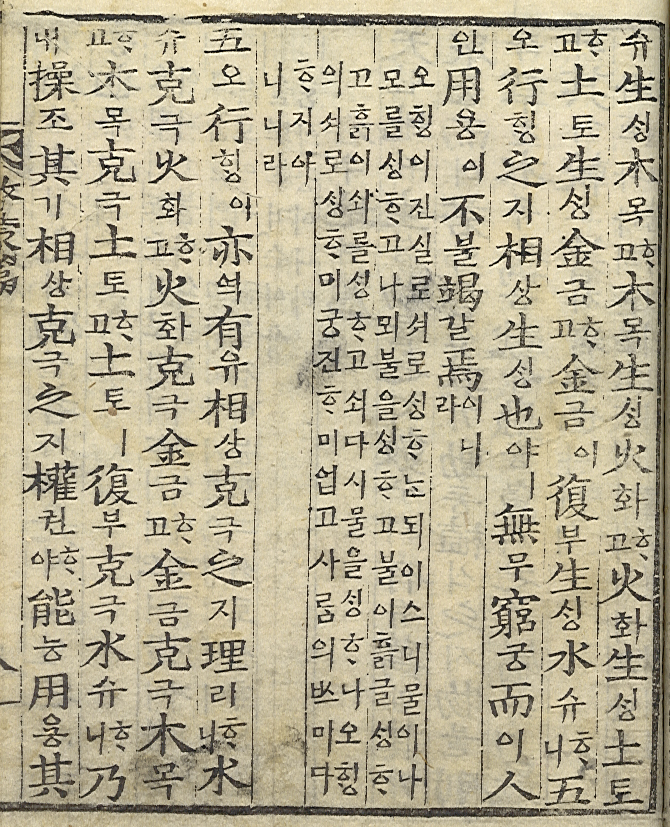 슈生ᄉᆡᆼ木목ᄒᆞ고木목生ᄉᆡᆼ火화ᄒᆞ고火화生ᄉᆡᆼ土토
ᄒᆞ고土토生ᄉᆡᆼ金금ᄒᆞ고金금이復부生ᄉᆡᆼ水슈ᄒᆞ니五
오行ᄒᆡᆼ之지相상生ᄉᆡᆼ也야ㅣ無무窮궁而이人
인用용이不불竭갈焉이니라
오ᄒᆡᆼ이진실로서로ᄉᆡᆼᄒᆞ는되이스니물이나
모를ᄉᆡᆼᄒᆞ고나뫼불을ᄉᆡᆼᄒᆞ고불이흙글ᄉᆡᆼᄒᆞ
고흙이쇠를ᄉᆡᆼᄒᆞ고쇠다시물을ᄉᆡᆼᄒᆞ나오ᄒᆡᆼ
의서로ᄉᆡᆼᄒᆞ미궁진ᄒᆞ미업고사ᄅᆞᆷ의ᄡᅳ미다
ᄒᆞ지아
니니라
五오行ᄒᆡᆼ이亦역有유相상克극之지理리ᄒᆞ니水
슈克극火화ᄒᆞ고火화克극金금ᄒᆞ고金금克극木목
ᄒᆞ고木목克극土토ᄒᆞ고土토ㅣ復부克극水슈ᄒᆞ니乃
내操조其기相상克극之지權권ᄒᆞ야能능用용其